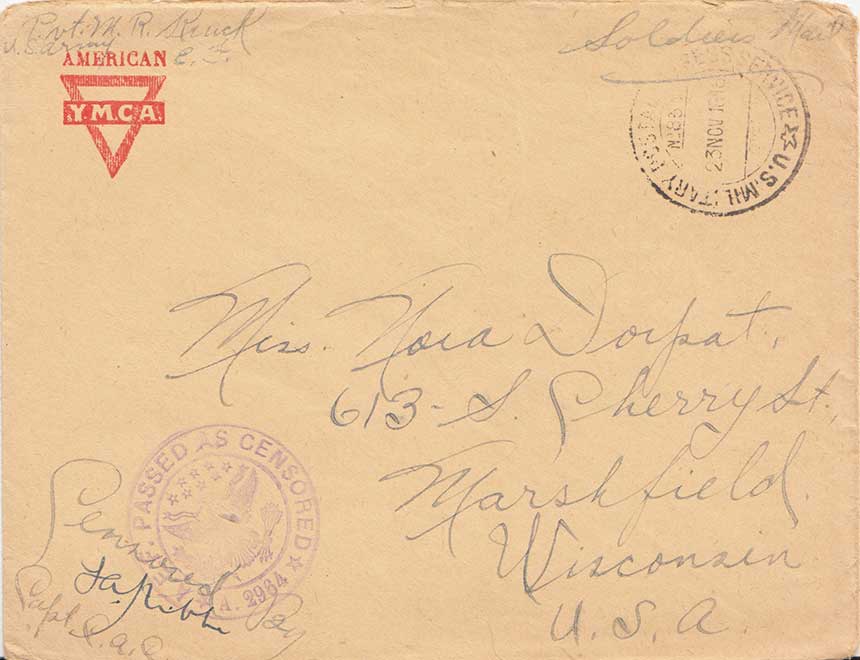 Pvt. M. R. Kruck
U.S. Army E. F.
Soldiers Mail
AMERICAN
Y.M.C.A
U.S. MILITARY POSTAL EXPRESS SERVICE
No 83
23 NOV 1918
Miss. Nora Dorpat,
613 - S. Cherry St,
Marshfield.
Wisconsin
U. S. A.
A.E.F. PASSED AS CENSORED
A. 2964
Censored
By
Capt C.A.C